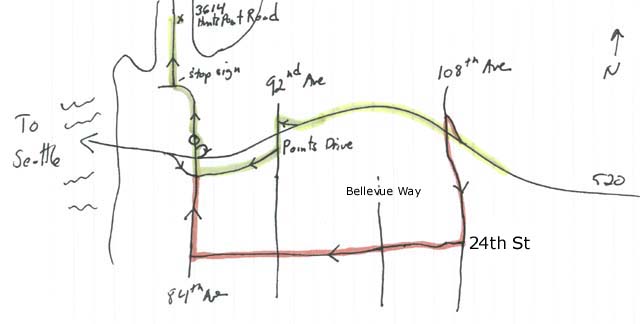 3614
Hunts Point Road
x
stop sign
92nd Ave
108th Ave
N
To
Seattle
Points Drive
Bellevue Way
520
24th St
84th Ave